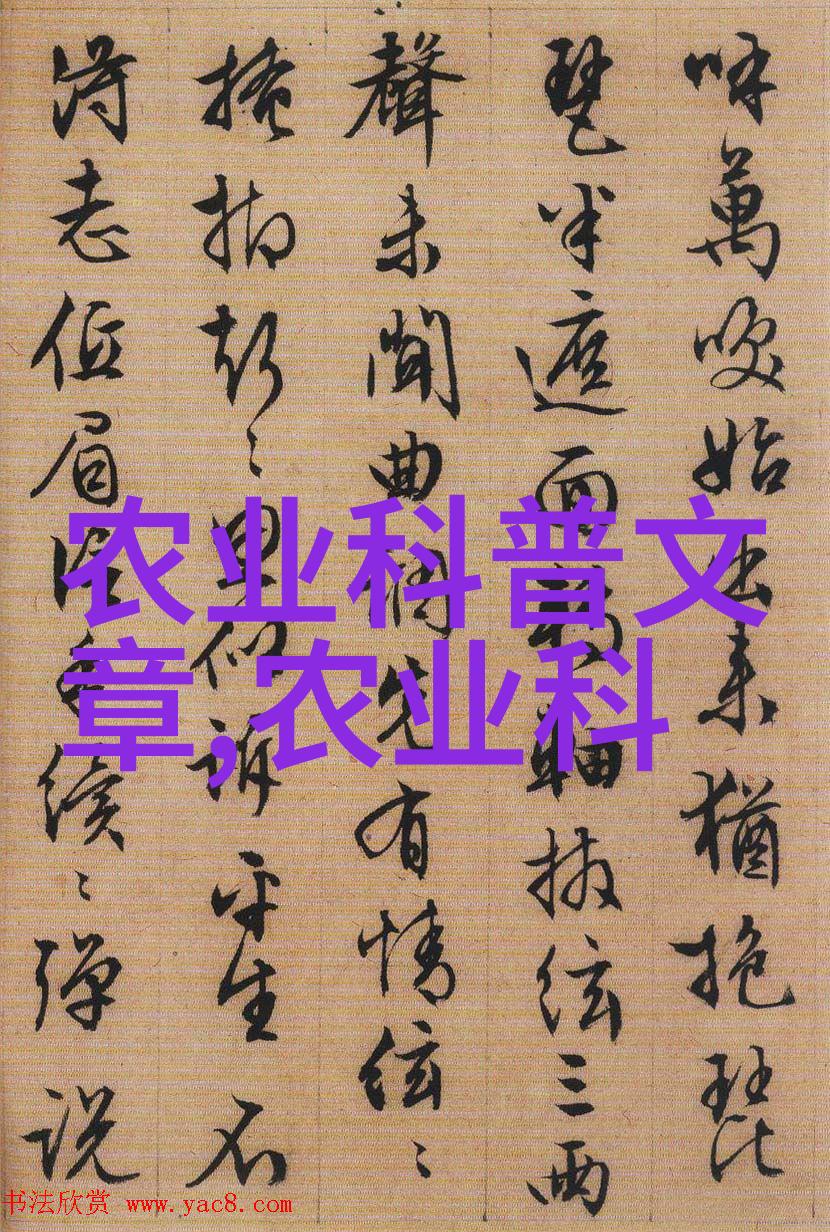 呼萬喚始出来猶抱琵
琶半遮面轉軸撥絃三两
聲未聞曲調先有情絃〻
掩抑聲〻思似訴平生不
得志低眉信手續〻弹説
农业科普文
章,农业科
书法欣赏 www.yac8.com